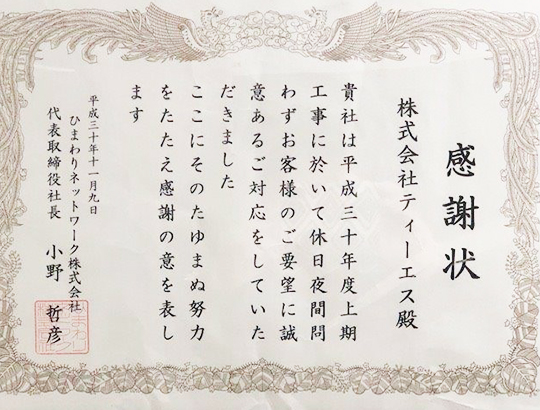 感謝状
株式会社ティーエス殿
貴社は平成三十年度上期
工事に於いて休日夜間問
わずお客様のご要望に誠
意あるご対応をしていた
だきました
ここにそのたゆまぬ努力
をたたえ感謝の意を表し
ます
平成三十年十一月九日
ひまわりネットワーク株式会社
代表取締役社長 小野 哲彦